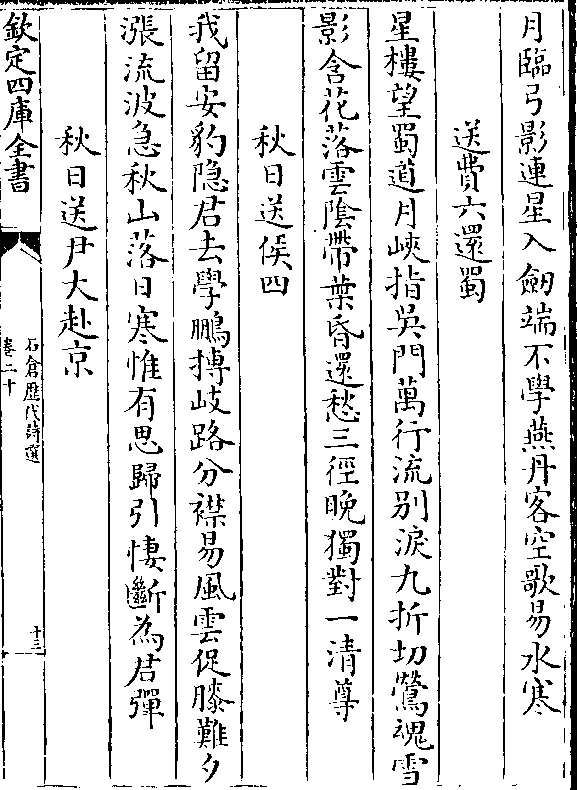 月臨弓影連星入劒端不學燕丹客空歌易水寒
送費六還蜀
星樓望蜀道月峽指吳門萬行流别淚九折切驚魂雪
影含花落雲隂帶葉昏還愁三徑晚獨對一清尊
秋日送侯四
我留安豹隐君去學鵬摶岐路分襟易風雲促膝難夕
漲流波急秋山落日寒惟有思歸引悽斷為君彈
秋日送尹大赴京
欽定四庫全書
石倉歴代詩選
卷二十
十三